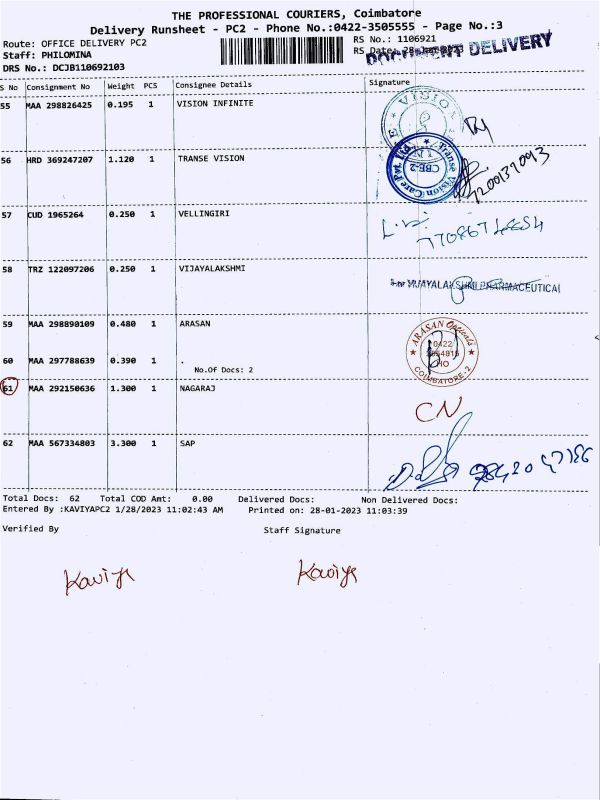 THE PROFESSIONAL COURIERS, Coimbatore
Delivery Runsheet - PC2 - Phone No.:0422-3505555 - Page No.:3
Route: OFFICE DELIVERY PC2
RS No.: 1106921
Staff: PHILOMINA
RS Date: 28-Jan-2023
DOCUMENT DELIVERY
DRS No.: DCJB110692103
S No Consignment No Weight PCS Consignee Details Signature
55 MAA 298826425 0.195 1 VISION INFINITE
VISION
56 HRD 369247207 1.120 1 TRANSE VISION
Transe Vision Care Pvt. Ltd.
CBE-2
7200137093
57 CUD 1965264 0.250 1 VELLINGIRI
58 TRZ 122097206 0.250 1 VIJAYALAKSHMI
VIJAYALAKSHMI PHARMACEUTICAL
59 MAA 298890109 0.480 1 ARASAN
ARASAN Opticals
0422
HO
COIMBATORE-2
60 MAA 297788639 0.390 1 .
No.Of Docs: 2
61 MAA 292150636 1.300 1 NAGARAJ
CN
62 MAA 567334803 3.300 1 SAP
Total Docs: 62 Total COD Amt: 0.00 Delivered Docs: Non Delivered Docs:
Entered By :KAVIYAPC2 1/28/2023 11:02:43 AM Printed on: 28-01-2023 11:03:39
Verified By Staff Signature
Kaviya Kaviya